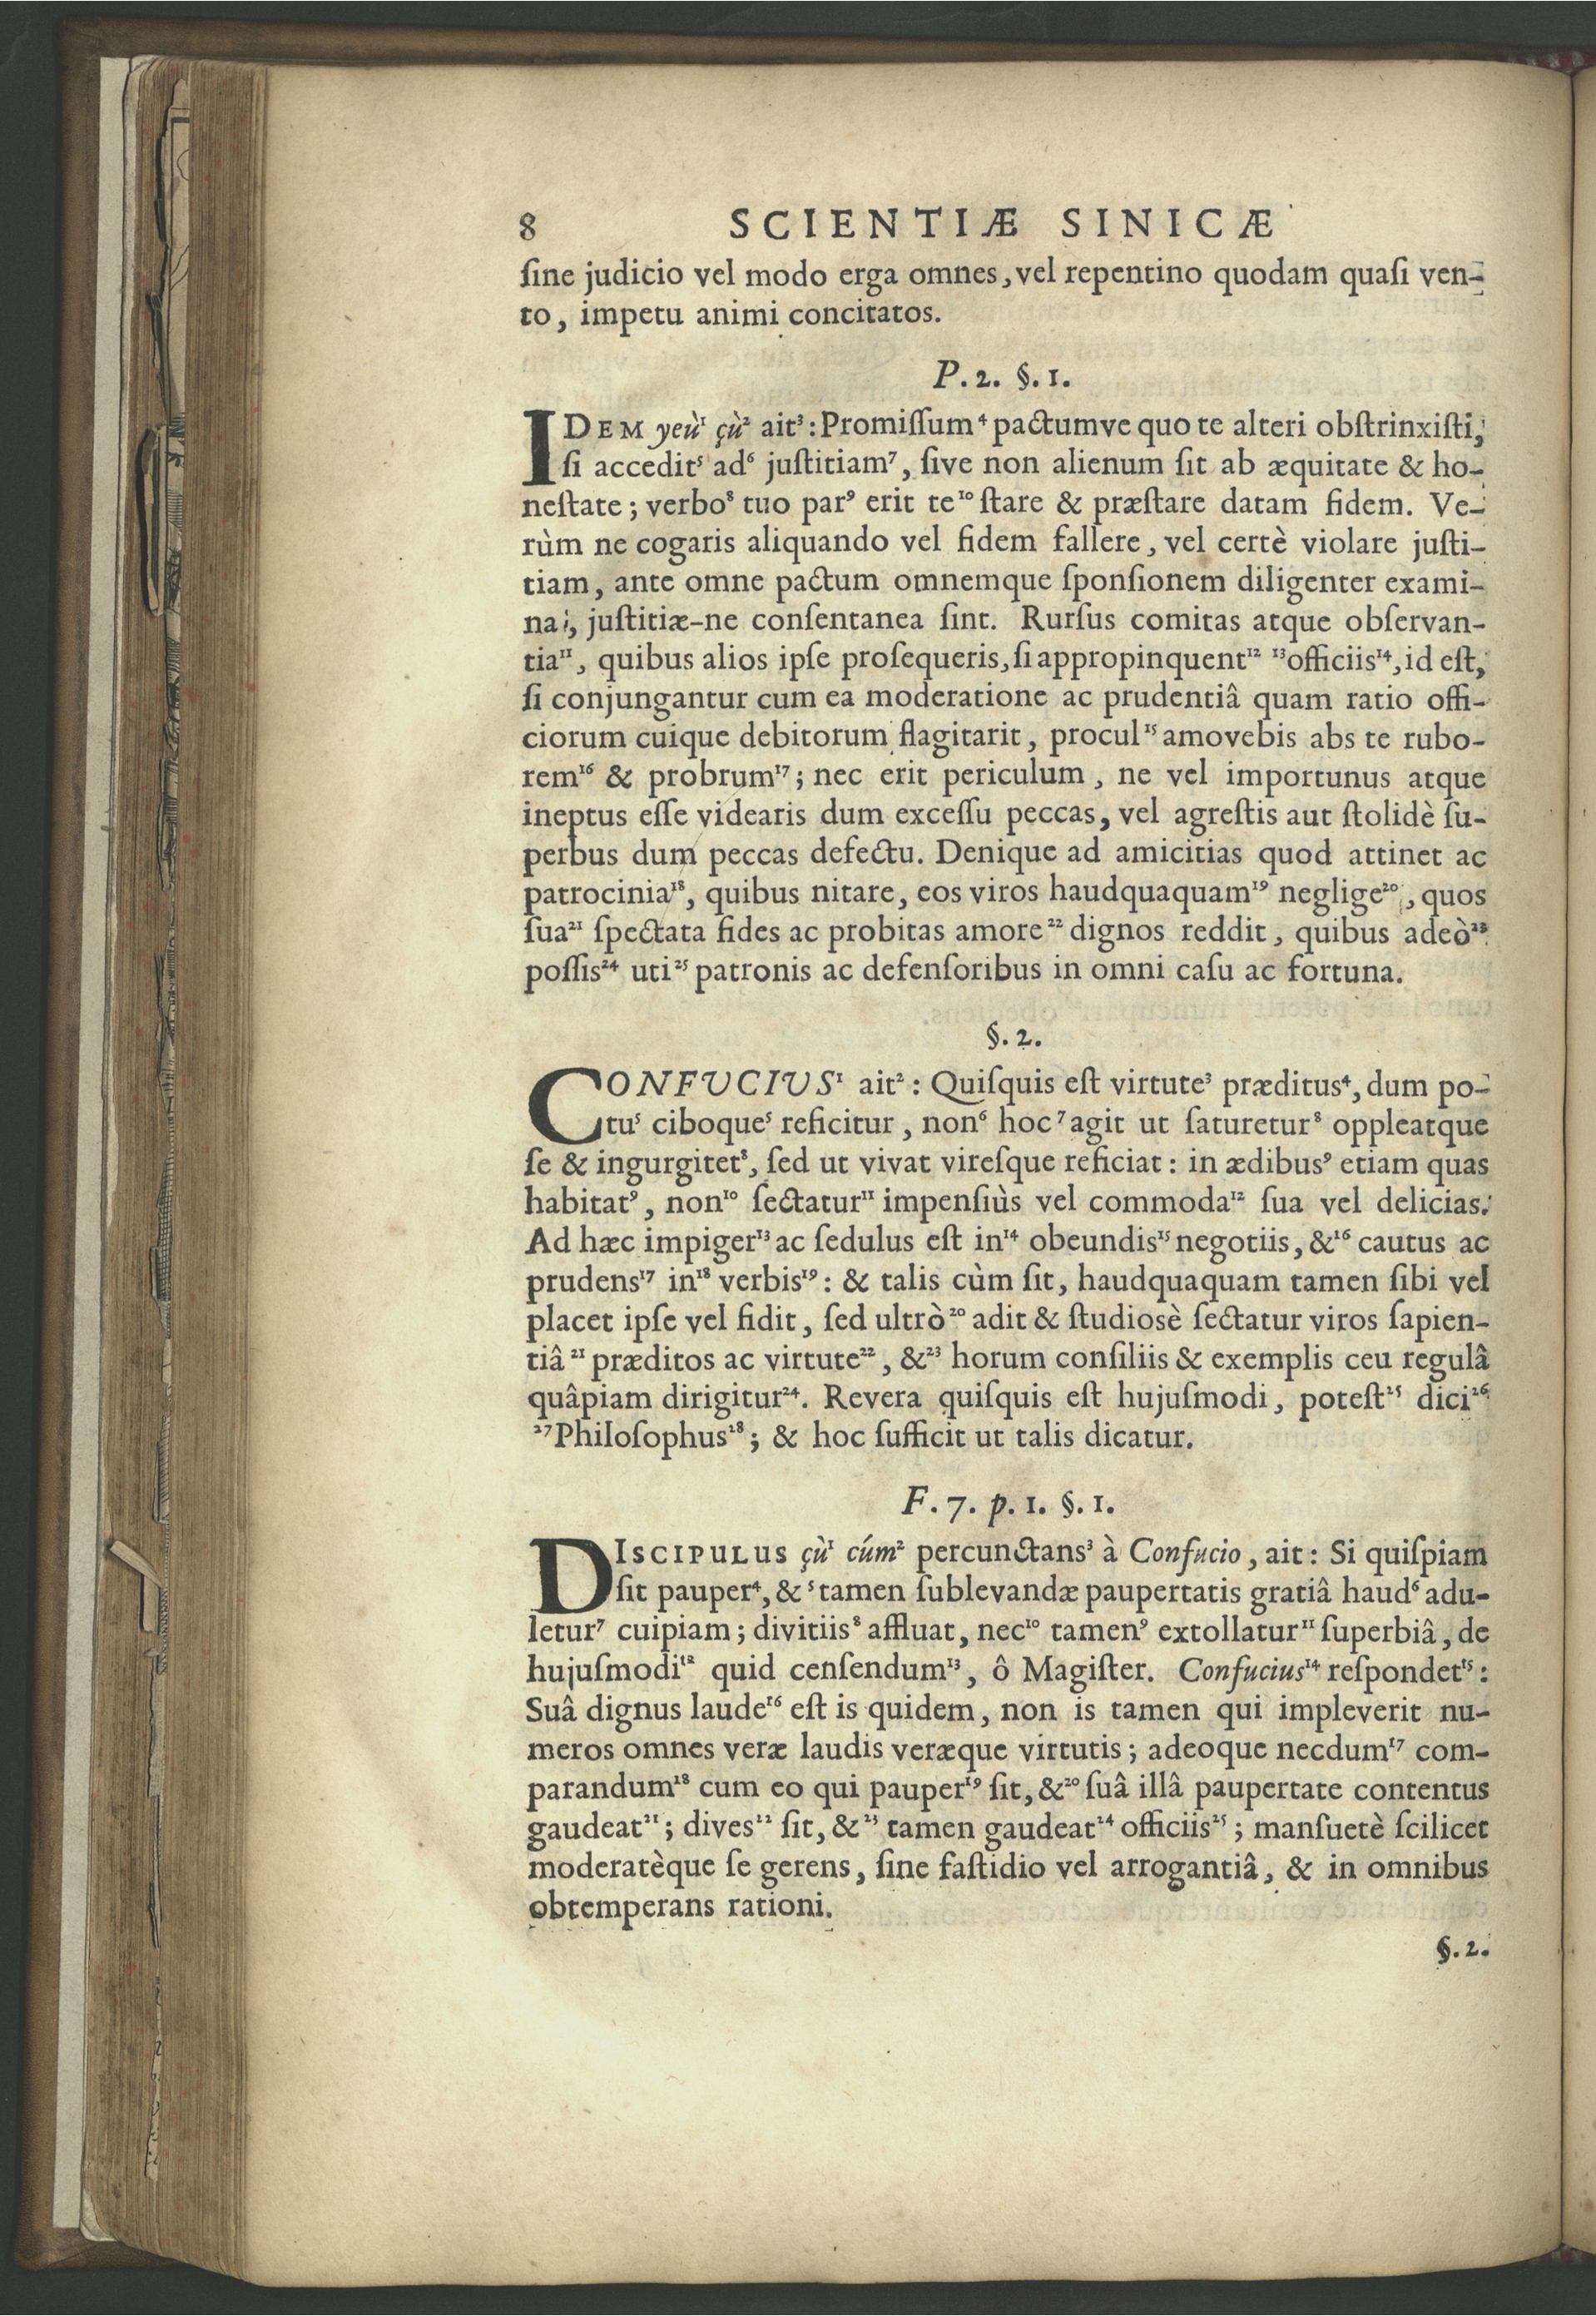 8 SCIENTIÆ SINICÆ
ſine judicio vel modo erga omnes, vel repentino quodam quaſi ven-
to, impetu animi concitatos.
P. 2. §. 1.
IDEM yeù¹ çù² ait³: Promiſſum⁴ pactumve quo te alteri obſtrinxiſti,
ſi accedit⁵ ad⁶ juſtitiam⁷, ſive non alienum ſit ab æquitate & ho-
neſtate; verbo⁸ tuo par⁹ erit te¹⁰ ſtare & præſtare datam fidem. Ve-
rùm ne cogaris aliquando vel fidem fallere, vel certè violare juſti-
tiam, ante omne pactum omnemque ſponſionem diligenter exami-
na, juſtitiæ-ne conſentanea ſint. Rurſus comitas atque obſervan-
tia¹¹, quibus alios ipſe proſequeris, ſi appropinquent¹² ¹³officiis¹⁴, id eſt,
ſi conjungantur cum ea moderatione ac prudentiâ quam ratio offi-
ciorum cuique debitorum flagitarit, procul¹⁵ amovebis abs te rubo-
rem¹⁶ & probrum¹⁷; nec erit periculum, ne vel importunus atque
ineptus eſſe videaris dum exceſſu peccas, vel agreſtis aut ſtolidè ſu-
perbus dum peccas defectu. Denique ad amicitias quod attinet ac
patrocinia¹⁸, quibus nitare, eos viros haudquaquam¹⁹ neglige²⁰, quos
ſua²¹ ſpectata fides ac probitas amore²² dignos reddit, quibus adeò²³
poſſis²⁴ uti²⁵ patronis ac defenſoribus in omni caſu ac fortuna.
§. 2.
CONFUCIUS¹ ait²: Quiſquis eſt virtute³ præditus⁴, dum po-
tu⁵ ciboque⁵ reficitur, non⁶ hoc⁷ agit ut ſaturetur⁸ oppleatque
ſe & ingurgitet⁸, ſed ut vivat vireſque reficiat: in ædibus⁹ etiam quas
habitat⁹, non¹⁰ ſectatur¹¹ impenſiùs vel commoda¹² ſua vel delicias.
Ad hæc impiger¹³ ac ſedulus eſt in¹⁴ obeundis¹⁵ negotiis, &¹⁶ cautus ac
prudens¹⁷ in¹⁸ verbis¹⁹: & talis cùm ſit, haudquaquam tamen ſibi vel
placet ipſe vel fidit, ſed ultrò²⁰ adit & ſtudiosè ſectatur viros ſapien-
tiâ²¹ præditos ac virtute²², &²³ horum conſiliis & exemplis ceu regulâ
quâpiam dirigitur²⁴. Revera quiſquis eſt hujuſmodi, poteſt²⁵ dici²⁶
²⁷Philoſophus²⁸; & hoc ſufficit ut talis dicatur.
F. 7. p. 1. §. 1.
DISCIPULUS çù¹ cúm² percunctans³ à Confucio, ait: Si quiſpiam
ſit pauper⁴, &⁵ tamen ſublevandæ paupertatis gratiâ haud⁶ adu-
letur⁷ cuipiam; divitiis⁸ affluat, nec¹⁰ tamen⁹ extollatur¹¹ ſuperbiâ, de
hujuſmodi¹² quid cenſendum¹³, ô Magiſter. Confucius¹⁴ reſpondet¹⁵:
Suâ dignus laude¹⁶ eſt is quidem, non is tamen qui impleverit nu-
meros omnes veræ laudis veræque virtutis; adeoque necdum¹⁷ com-
parandum¹⁸ cum eo qui pauper¹⁹ ſit, &²⁰ ſuâ illâ paupertate contentus
gaudeat²¹; dives²² ſit, &²³ tamen gaudeat²⁴ officiis²⁵; manſuetè ſcilicet
moderatèque ſe gerens, ſine faſtidio vel arrogantiâ, & in omnibus
obtemperans rationi.
§. 2.